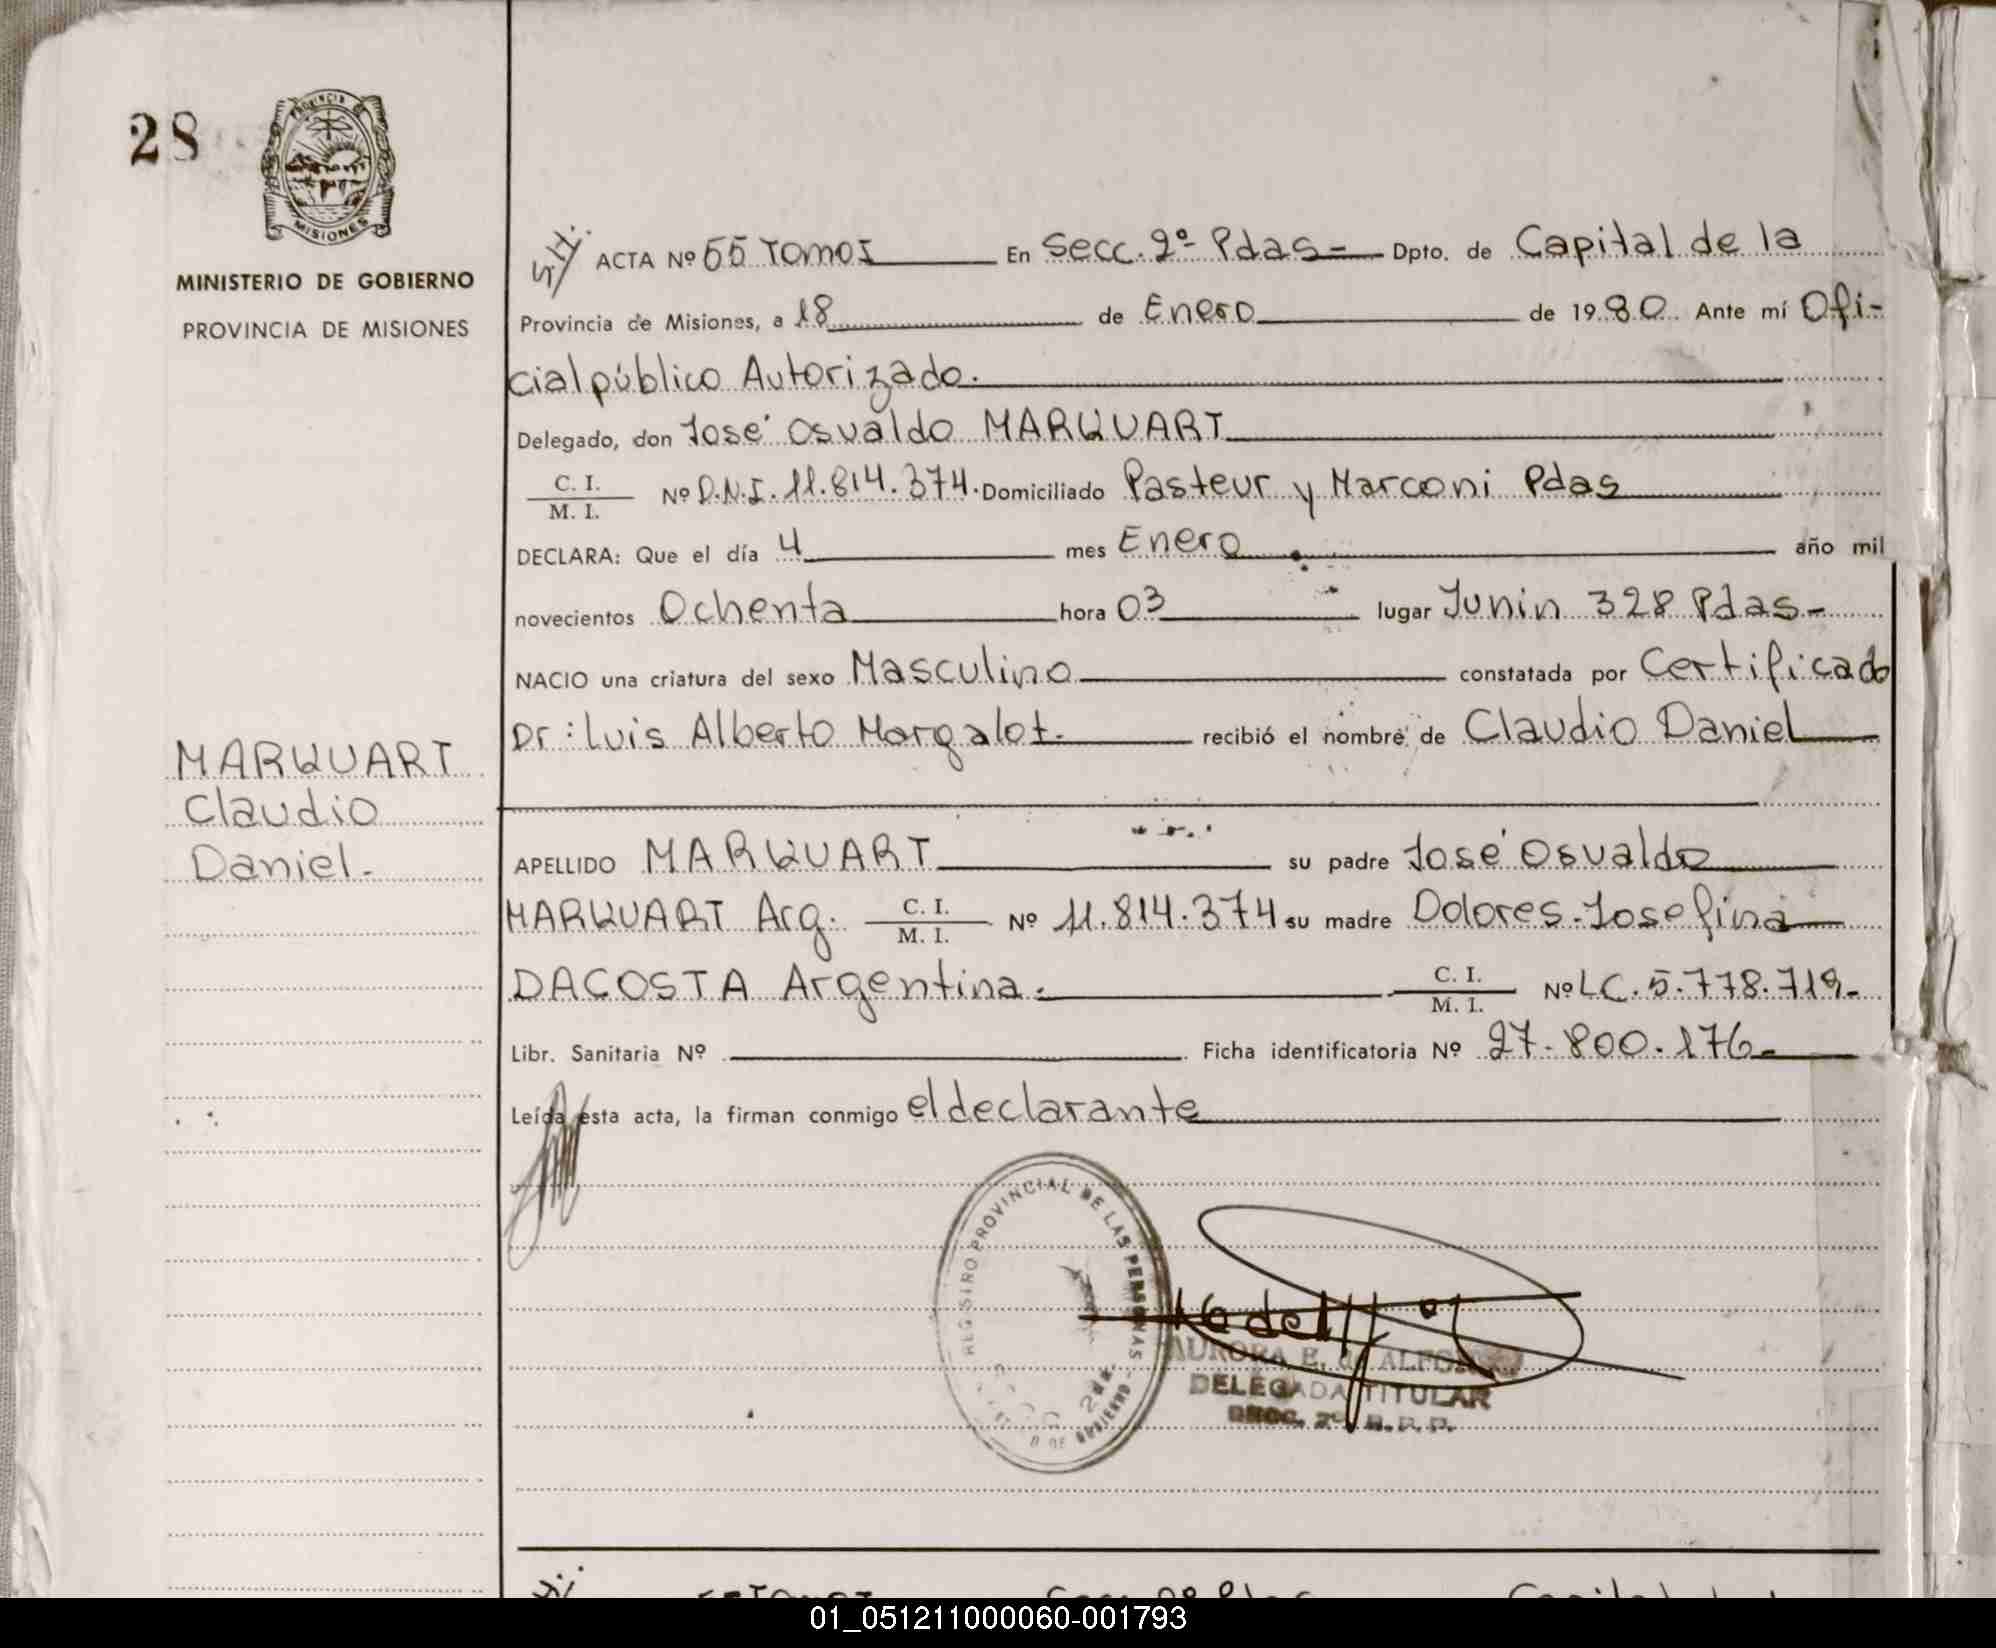 28
PROVINCIA DE
MISIONES
MINISTERIO DE GOBIERNO
PROVINCIA DE MISIONES
ACTA Nº 55 Tomo I En Secc. 2º Pdas = Dpto. de Capital de la
Provincia de Misiones, a 18 de Enero de 1980 Ante mí Ofi-
cial público Autorizado.
Delegado, don José Osvaldo MARKUART
C. I.
M. I. Nº D.N.I. 11.814.374. Domiciliado Pasteur y Marconi Pdas
DECLARA: Que el día 4 mes Enero año mil
novecientos Ochenta hora 03 lugar Junin 328 Pdas-
NACIO una criatura del sexo Masculino constatada por Certificado
Dr: Luis Alberto Margalot. recibió el nombre de Claudio Daniel
MARKUART
Claudio
Daniel.
APELLIDO MARKUART su padre José Osvaldo
MARKUART Arg. C. I. M. I. Nº 11.814.374 su madre Dolores Josefina
DACOSTA Argentina. C. I. M. I. Nº LC. 5.778.719-
Libr. Sanitaria Nº Ficha identificatoria Nº 27.800.176-
Leída esta acta, la firman conmigo el declarante
REGISTRO PROVINCIAL DE LAS PERSONAS
AURORA E. de
DELEGADA TITULAR
SECC. 2º R.P.P.
01_051211000060-001793